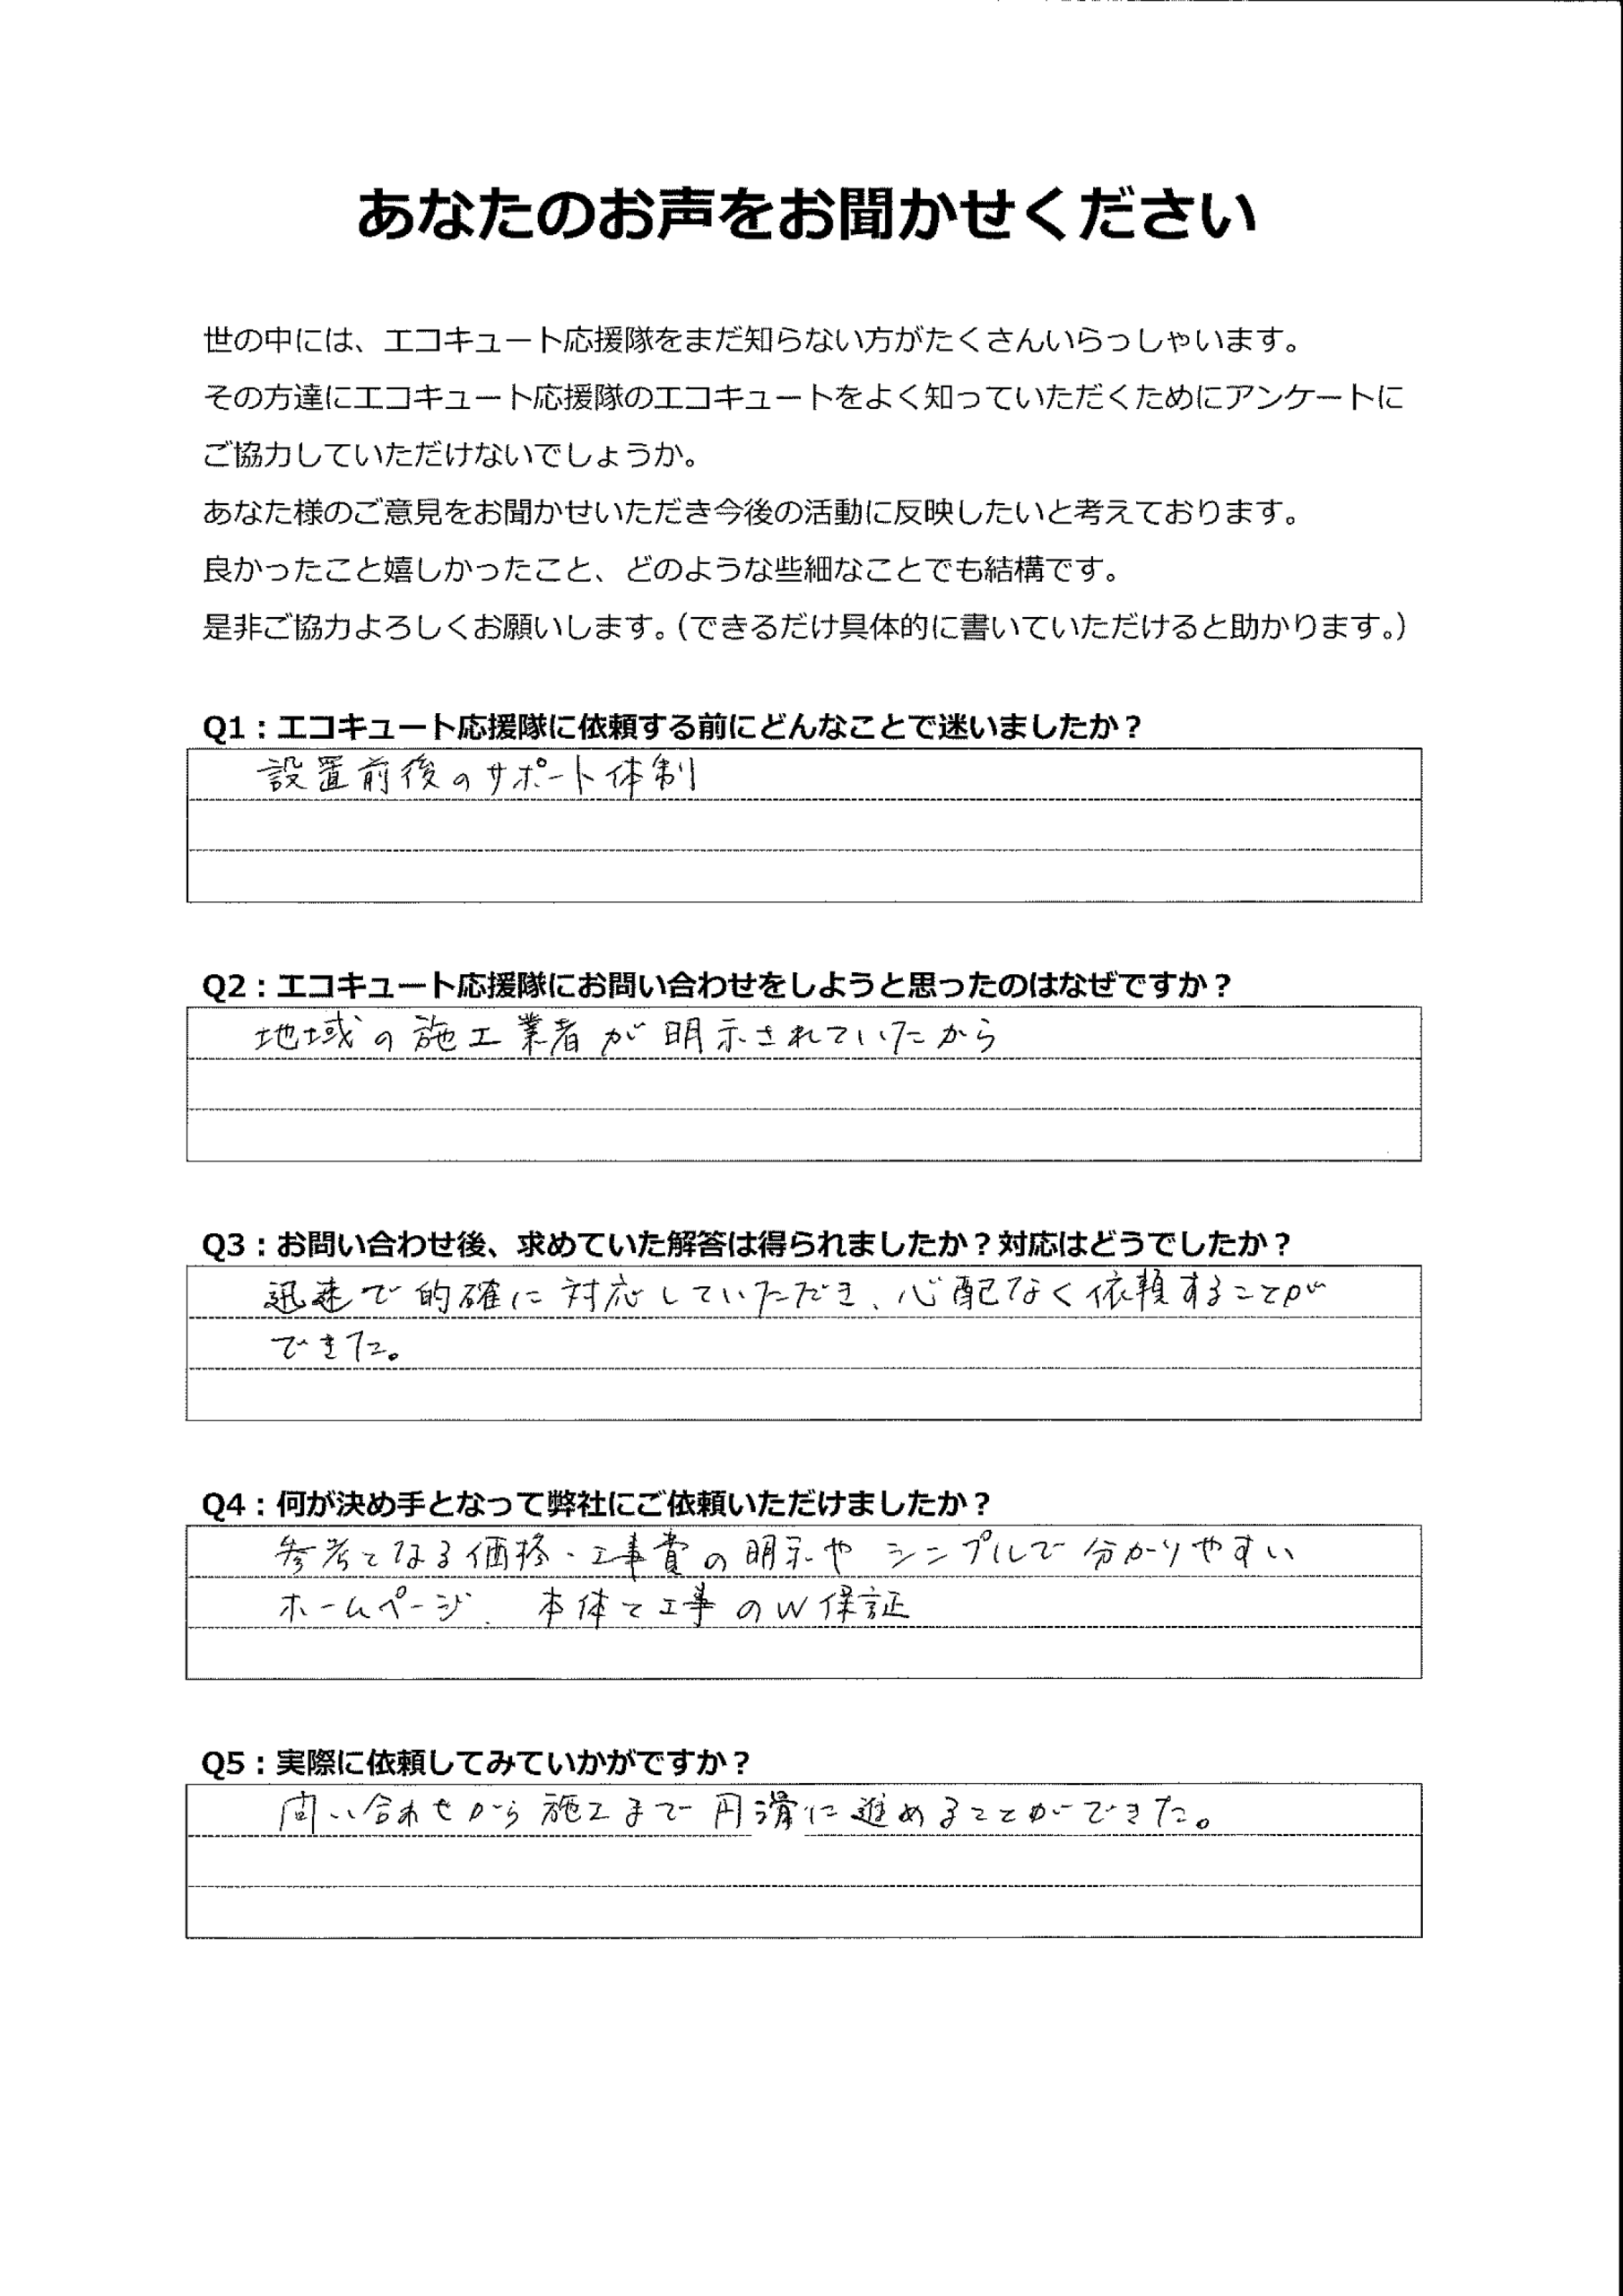 あなたのお声をお聞かせください
世の中には、エコキュート応援隊をまだ知らない方がたくさんいらっしゃいます。
その方達にエコキュート応援隊のエコキュートをよく知っていただくためにアンケートに
ご協力していただけないでしょうか。
あなた様のご意見をお聞かせいただき今後の活動に反映したいと考えております。
良かったこと嬉しかったこと、どのような些細なことでも結構です。
是非ご協力よろしくお願いします。（できるだけ具体的に書いていただけると助かります。）
Q1：エコキュート応援隊に依頼する前にどんなことで迷いましたか？
設置前後のサポート体制
Q2：エコキュート応援隊にお問い合わせをしようと思ったのはなぜですか？
地域の施工業者が明示されていたから
Q3：お問い合わせ後、求めていた解答は得られましたか？対応はどうでしたか？
迅速で的確に対応していただき、心配なく依頼することが
できた。
Q4：何が決め手となって弊社にご依頼いただけましたか？
参考となる価格・工事費の明示やシンプルで分かりやすい
ホームページ、本体と工事のW保証
Q5：実際に依頼してみていかがですか？
問い合わせから施工まで円滑に進めることができた。